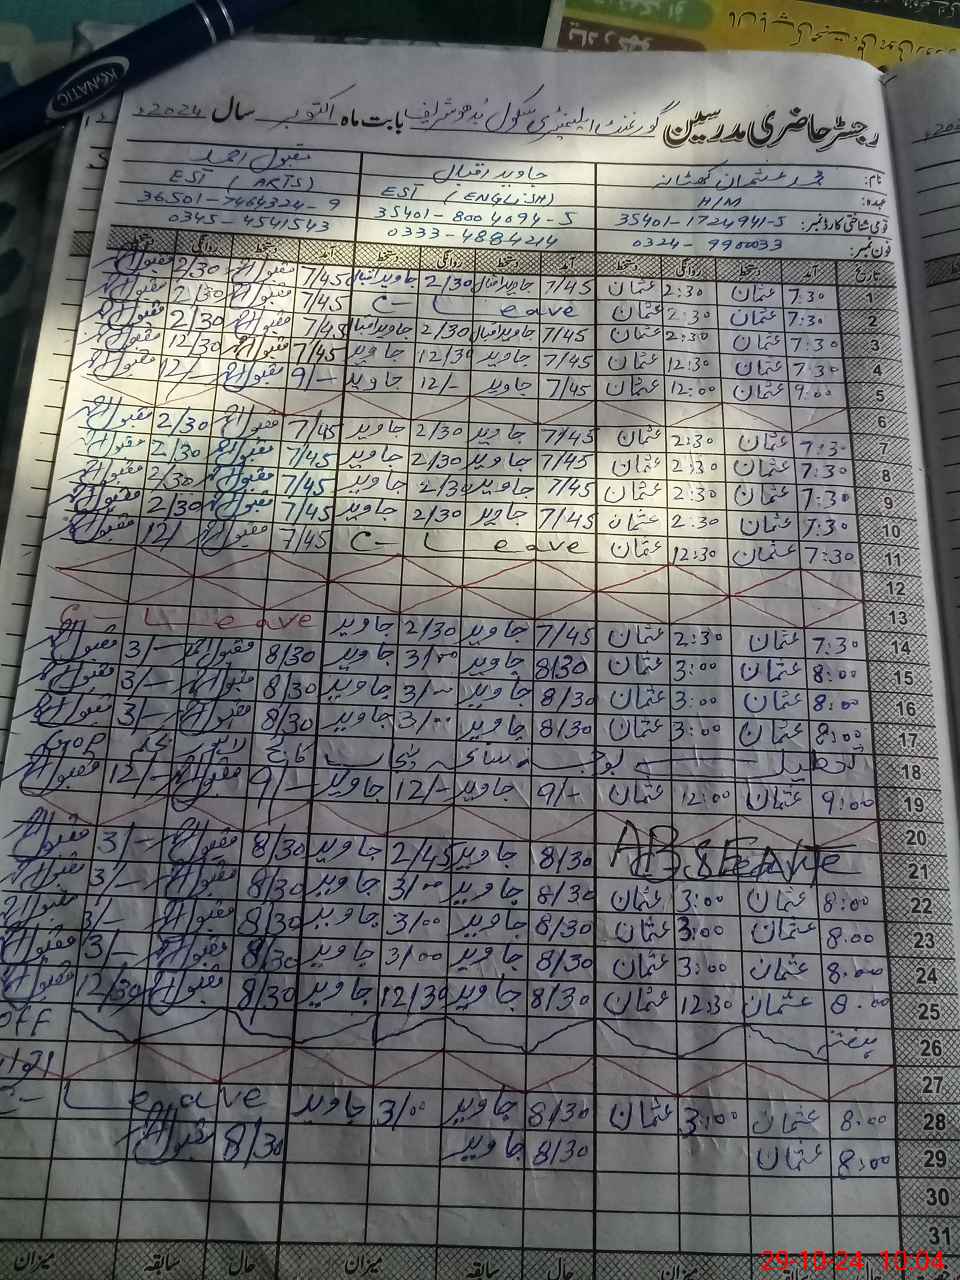 KENATIC
رجسٹر حاضری مدرسین گورنمنٹ ایلیمنٹری سکول بُدھو شریف بابت ماہ اکتوبر سال 2024ء
نام: محمد عثمان جاوید اقبال مقبول احمد
عہدہ: H/M EST (ENGLISH) EST (ARTS)
قومی شناختی کارڈ نمبر: 35401-1724941-5 35401-8004094-5 36501-7464324-9
فون نمبر: 0324-9900033 0333-4884214 0345-4541543
تاریخ آمد دستخط روانگی دستخط آمد دستخط روانگی دستخط آمد دستخط روانگی دستخط
1 7:30 عثمان 2:30 عثمان 7/45 جاوید اقبال 2/30 جاوید اقبال 7/45 مقبول احمد 2/30 مقبول احمد
2 7:30 عثمان 2:30 عثمان C- Leave 7/45 مقبول احمد 2/30 مقبول احمد
3 7:30 عثمان 2:30 عثمان 7/45 جاوید اقبال 2/30 جاوید اقبال 7/45 مقبول احمد 2/30 مقبول احمد
4 7:30 عثمان 12:30 عثمان 7/45 جاوید 12/30 جاوید 7/45 مقبول احمد 12/30 مقبول احمد
5 9:00 عثمان 12:00 عثمان 7/45 جاوید 12/- جاوید 9/- مقبول احمد 12/- مقبول احمد
6
7 7:30 عثمان 2:30 عثمان 7/45 جاوید 2/30 جاوید 7/45 مقبول احمد 2/30 مقبول احمد
8 7:30 عثمان 2:30 عثمان 7/45 جاوید 2/30 جاوید 7/45 مقبول احمد 2/30 مقبول احمد
9 7:30 عثمان 2:30 عثمان 7/45 جاوید 2/30 جاوید 7/45 مقبول احمد 2/30 مقبول احمد
10 7:30 عثمان 2:30 عثمان 7/45 جاوید 2/30 جاوید 7/45 مقبول احمد 2/30 مقبول احمد
11 7:30 عثمان 12:30 عثمان C- Leave 7/45 مقبول احمد 12/ مقبول احمد
12
13
14 7:30 عثمان 2:30 عثمان 7/45 جاوید 2/30 جاوید C- Leave
15 8:00 عثمان 3:00 عثمان 8/30 جاوید 3/00 جاوید 8/30 مقبول احمد 3/- مقبول احمد
16 8:00 عثمان 3:00 عثمان 8/30 جاوید 3/00 جاوید 8/30 مقبول احمد 3/- مقبول احمد
17 8:00 عثمان 3:00 عثمان 8/30 جاوید 3/00 جاوید 8/30 مقبول احمد 3/- مقبول احمد
18 تعطیل بوجہ سانحہ کالج لاہور بحکم
19 9:00 عثمان 12:00 عثمان 9/- جاوید 12/- جاوید 9/- مقبول احمد 12/- مقبول احمد
20
21 ABSEANT 8/30 جاوید 2/45 جاوید 8/30 مقبول احمد 3/- مقبول احمد
22 8:00 عثمان 3:00 عثمان 8/30 جاوید 3/00 جاوید 8/30 مقبول احمد 3/- مقبول احمد
23 8:00 عثمان 3:00 عثمان 8/30 جاوید 3/00 جاوید 8/30 مقبول احمد 3/- مقبول احمد
24 8:00 عثمان 3:00 عثمان 8/30 جاوید 3/00 جاوید 8/30 مقبول احمد 3/- مقبول احمد
25 8:00 عثمان 12:30 عثمان 8/30 جاوید 12/30 جاوید 8/30 مقبول احمد 12/30 مقبول احمد
26 ہفتہ OFF
27 اتوار
28 8:00 عثمان 3:00 عثمان 8/30 جاوید 3/00 جاوید C- Leave
29 8:00 عثمان 8/30 جاوید 8/30 مقبول احمد
30
31
حال میزان سابقہ حال میزان سابقہ حال سابقہ میزان
29-10-24 10:04